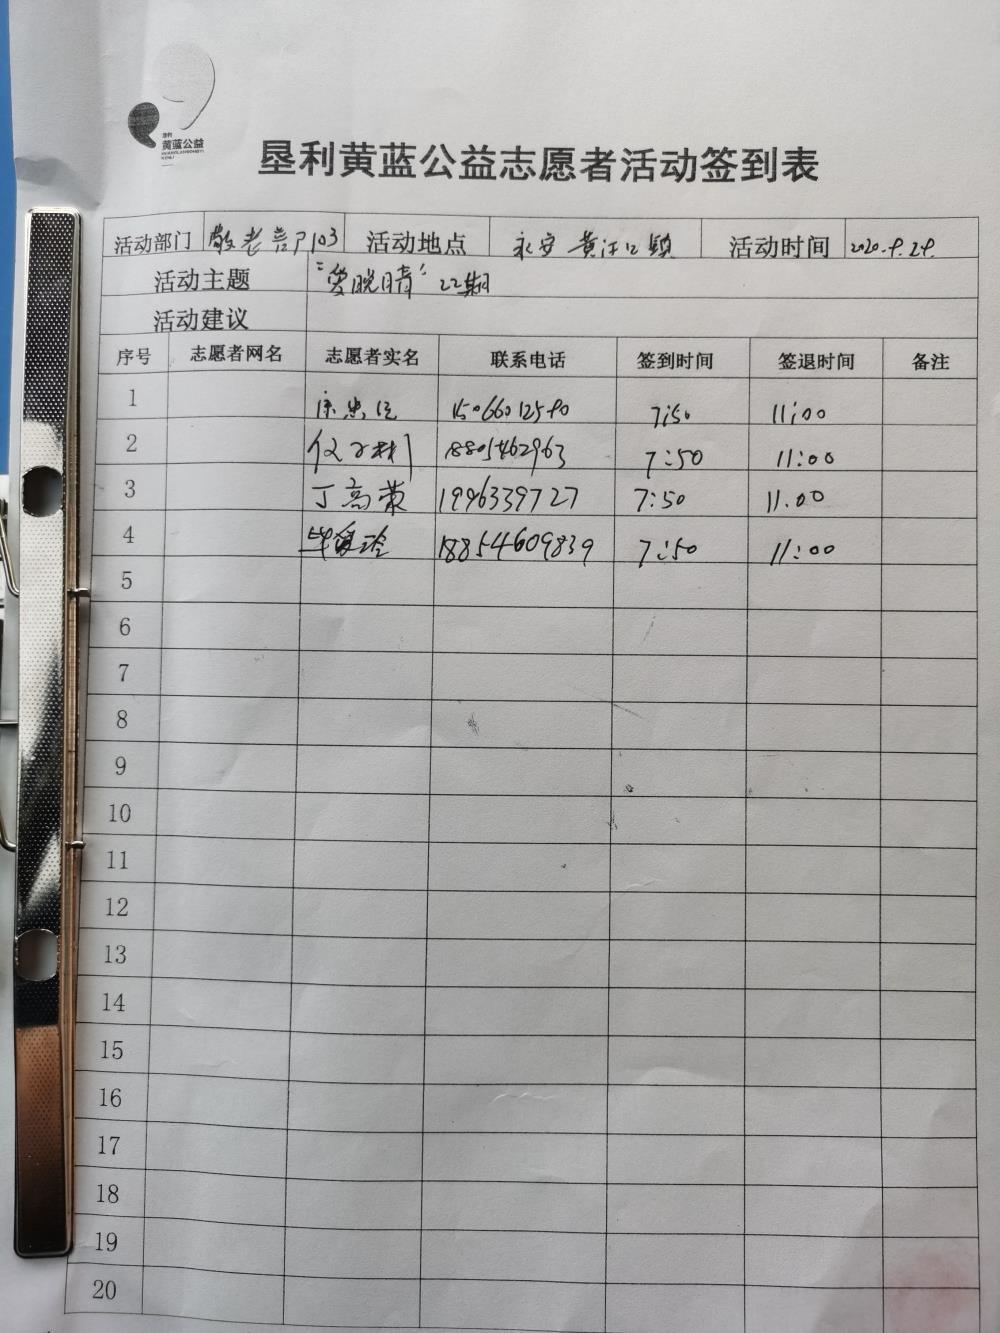 垦利
黄蓝公益
HUANGLANGONGYI
KENLI
垦利黄蓝公益志愿者活动签到表
活动部门 敬老 部 活动地点 永安 黄河口镇 活动时间 2020.9.29.
活动主题 "爱脱睛" 22期
活动建议
序号 志愿者网名 志愿者实名 联系电话 签到时间 签退时间 备注
1 15066012590 7:50 11:00
2 18805462963 7:50 11:00
3 丁高荣 1996339727 7:50 11.00
4 18854609839 7:50 11:00
5
6
7
8
9
10
11
12
13
14
15
16
17
18
19
20